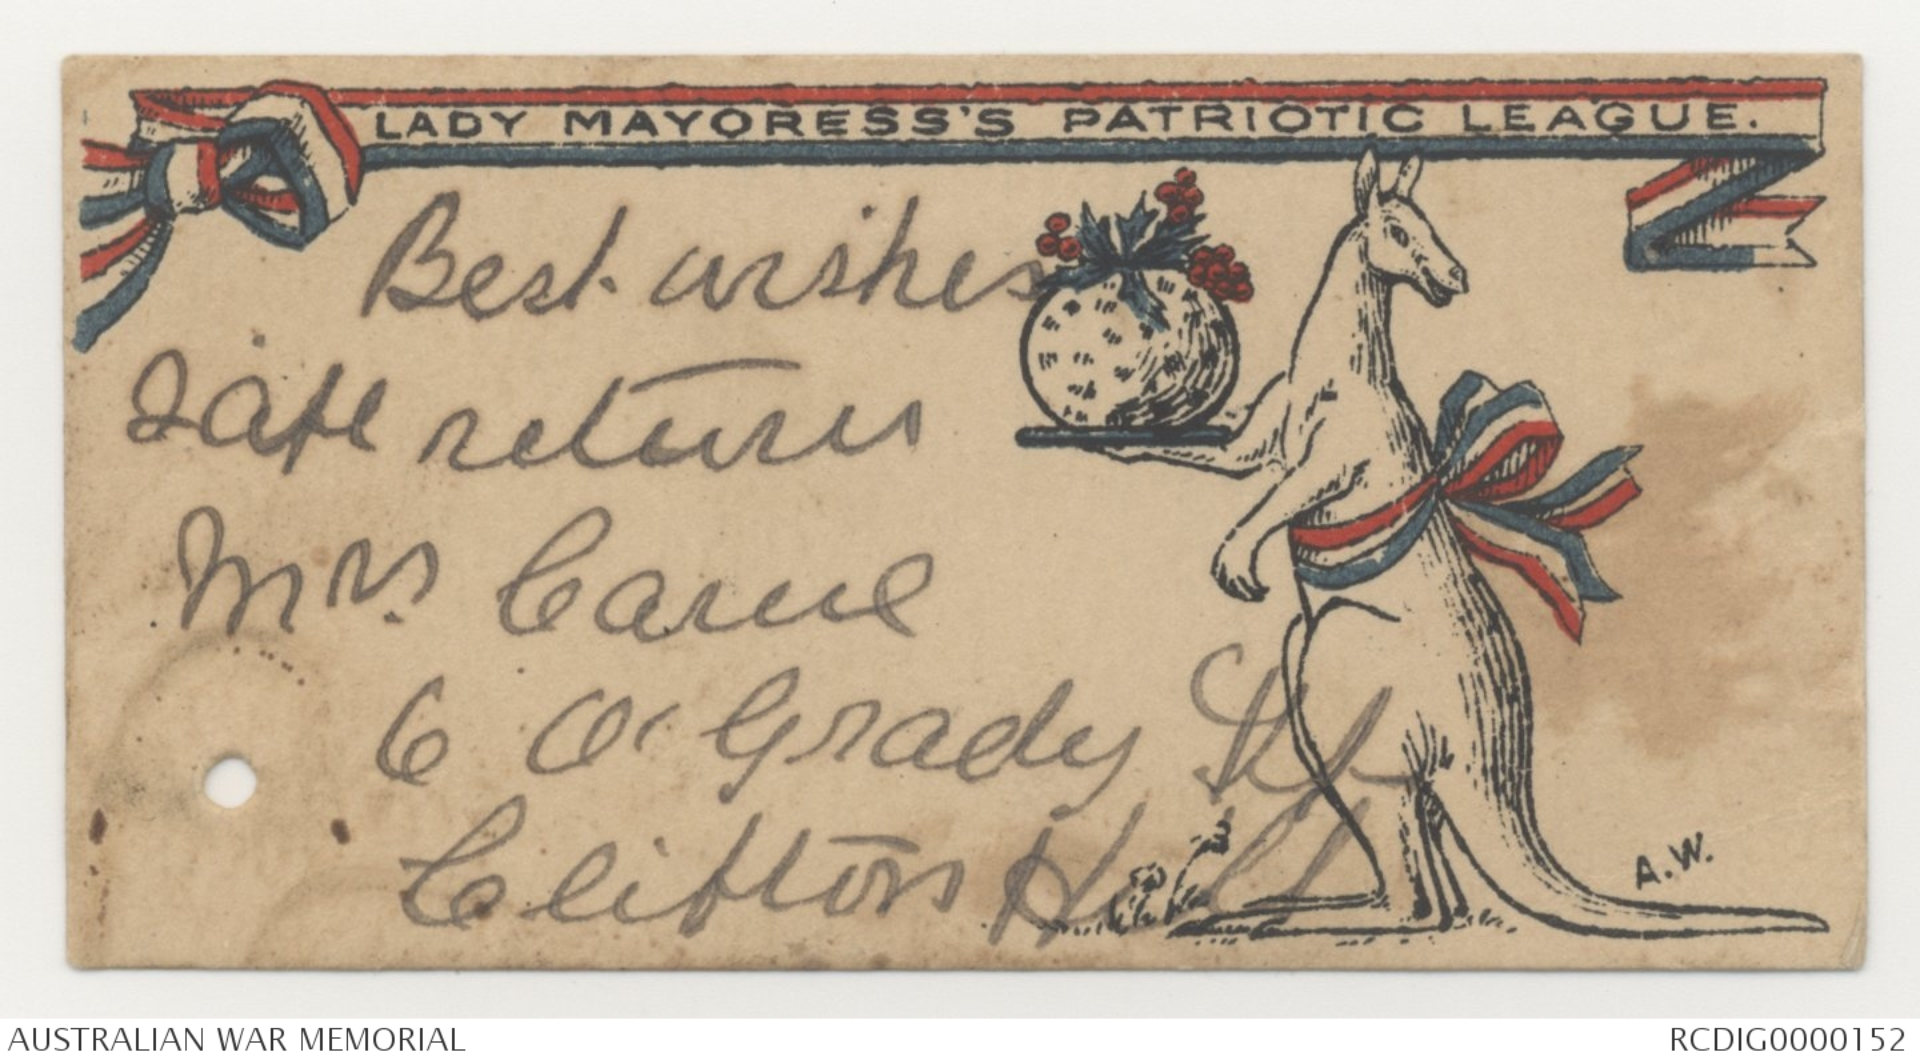 LADY MAYORESS'S PATRIOTIC LEAGUE.
Best wishes
safe return
Mrs. Carne
6 O'Grady St
Clifton Hill
A.W.
AUSTRALIAN WAR MEMORIAL
RCDIG0000152